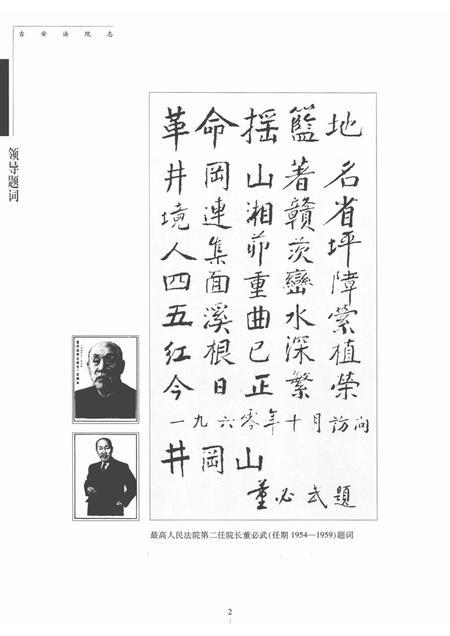 吉安法院志
领导题词
革命摇籃地
井岡山著名
境連湘贛省
人集茆茨坪
四面重巒障
五溪曲水縈
红根已深植
今日正繁榮
一九六零年十月访问
井岡山
董必武題
最高人民法院第二任院长董必武(任期 1954—1959)题词
2